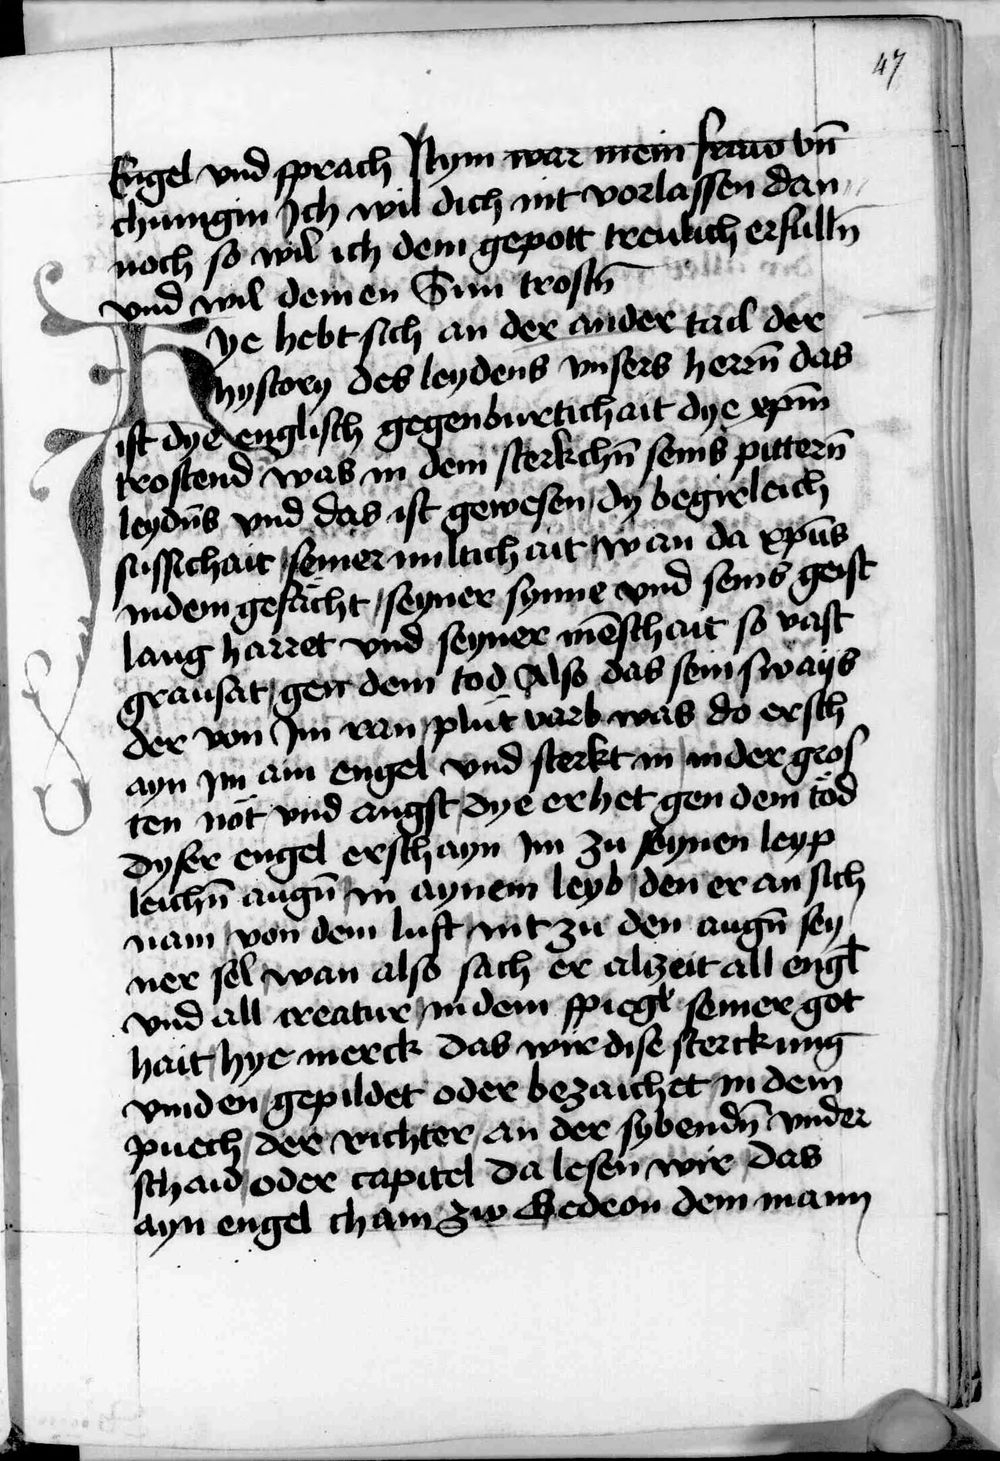 47
Engel vnd sprach Nym war mein fraw vn̄
chunigin Ich wil dich nit vorlassen dan
noch so wil ich dem gepott treulich erfulln̄
vnd wil deinen Sun trostn̄
Hye hebt sich an der ander tail der
hystory des leydens vnsers herrn̄ das
ist dye englisch gegenburtichait dye xpm̄
trostend was in dem sterkchn̄ seins pittern̄
leydn̄s vnd das ist gewesen dy begirleich
sussichait seiner miltichait wan da xpūs
in dem gefächt seyner synne vnd seins geist
lang harret vnd seyner mēschait so vast
grausat gen dem tod Also das sein swaÿs
der von Im ran plut varb was do ersch
ayn Im ain engel vnd sterkt in in der gros
ten nöt vnd angst dye er het gen dem töd
Dyser engel erschayn Im zu seynen leyp
leichn̄ augn̄ in aynem leyb den er an sich
nam von dem luft nit zu den augn̄ sey
ner sel wan also sach er alzeit all engl
vnd all creatur in dem spiegl seiner got
hait hye merck das wir dise sterckung
vinden gepildet oder bezaichet in dem
puech der richter an der sybendn̄ vnder
schaid oder capitel Da lesen wir das
ayn engel cham zw Gedeon dem mann